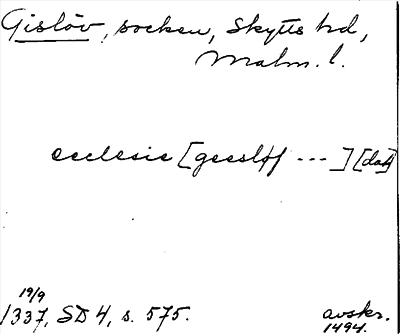 Gislöv, socken, Skytts hd,
Malm. l.
ecclesie [geesløf ---] [dat]
19/9
1337, SD 4, s. 575.
avskr.
1494.